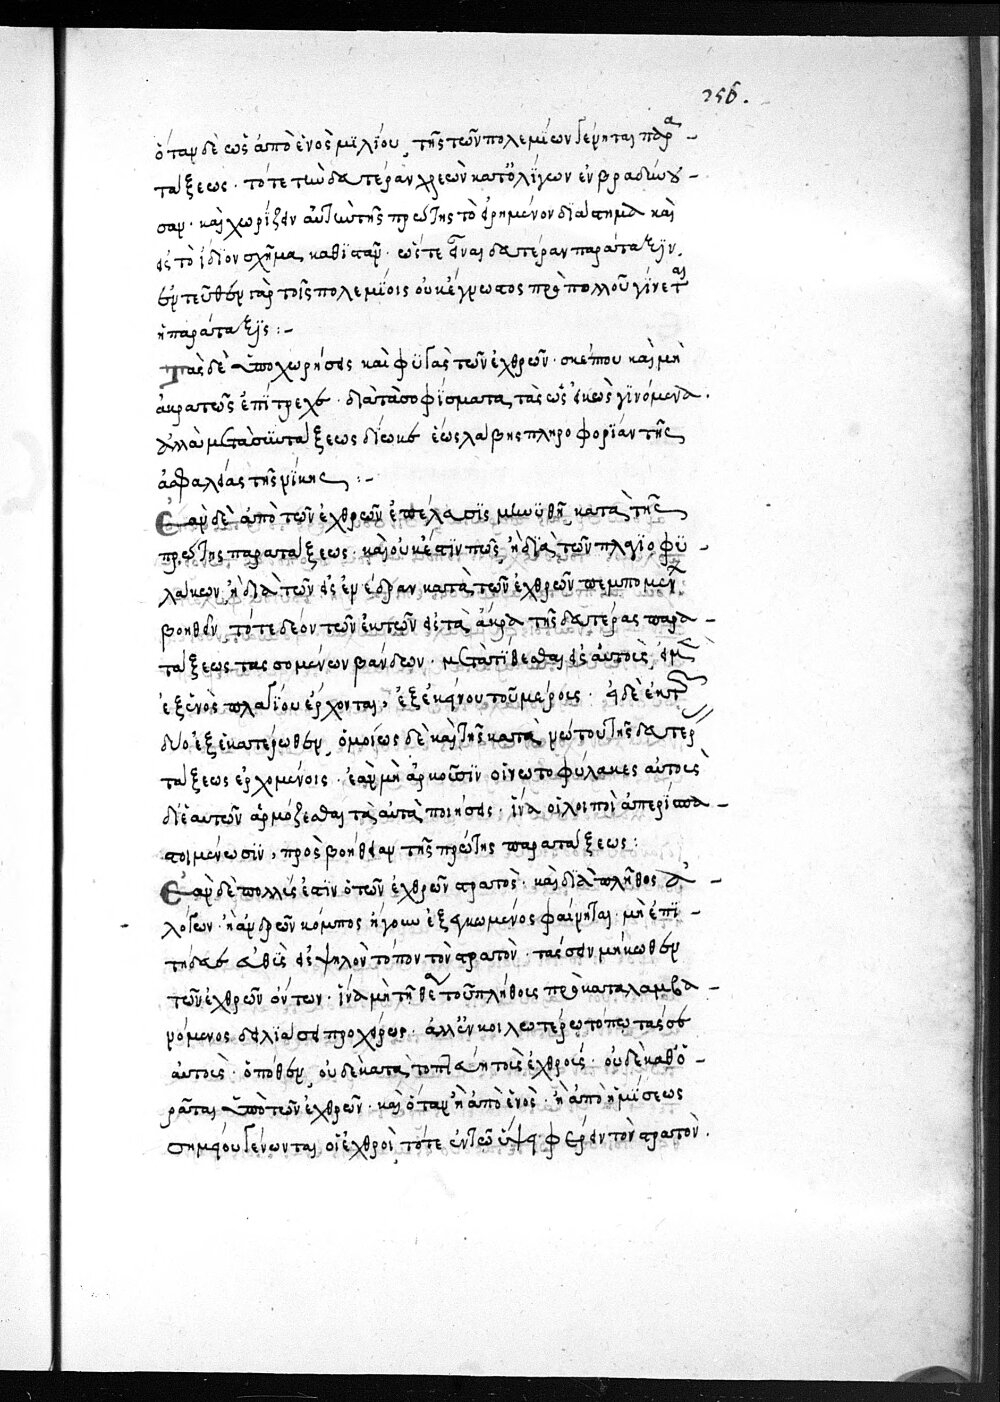 256.
ὅταν δὲ ὡς ἀπὸ ἑνὸς μιλίου, τῆς τῶν πολεμίων γένηται παρα
τάξεως· τότε τὴν δευτέραν χρεὼν κατ' ὀλίγων ἐνβραδύνου
σαν· καὶ χωρίζειν αὐτὴν τῆς πρώτης τὸ εἰρημένον διάστημα καὶ
εἰς τὸ ἴδιον σχῆμα, καθιστᾶν· ὥστε εἶναι δευτέραν παράταξιν.
ἐντεῦθεν γὰρ τοῖς πολεμίοις οὐκ ἔγνωστος πρὸ πολλοῦ γίνεται
ἡ παράταξις:-
Τὰς δὲ ὑποχωρήσεις καὶ φυγὰς τῶν ἐχθρῶν· σκέπου καὶ μὴ
ἀκρατῶς ἐπίτρεχε· διὰ τὰ σοφίσματα, τὰς ὡς εἰκὸς γινόμενα.
ἀλλὰ μετὰ συντάξεως δίωκε ἕως λάβης πληροφορίαν τῆς
ἀσφαλείας τῆς νίκης:-
Ἐὰν δὲ ἀπὸ τῶν ἐχθρῶν ἐπέλασις μηνυθῇ κατὰ τῆς
πρώτης παρατάξεως· καὶ οὐκ ἔστιν πῶς ἢ διὰ τῶν πλαγιοφυ
λάκων, ἢ διὰ τῶν εἰς ἐνέδραν κατὰ τῶν ἐχθρῶν πεμπομένων
βοηθεῖν, τότε δέον τῶν ἐκ τῶν εἰς τὰ ἄκρα τῆς δευτέρας παρα
τάξεως τασσομένων βάνδων· μετατίθεσθαι εἰς αὐτοὺς, εἰ μὲν
ἐξ ἑνὸς πλαγίου ἔρχονται, ἐξ ἐκείνου τοῦ μέρους· εἰ δὲ ἐκ τῶν
δύο ἐξ ἑκατέρωθεν, ὁμοίως δὲ καὶ τῆς κατὰ νώτου τῆς δευτέρ
τάξεως ἐρχομένοις· ἐὰν μὴ ἀρκοῦσιν οἱ νωτοφύλακες αὐτοὺς
δι' ἑαυτῶν ἁρμόζεσθαι τὰ αὐτὰ ποιήσεις· ἵνα οἱ λοιποὶ ἀπερίσπα
στοι μένωσιν, πρὸς βοήθειαν τῆς πρώτης παρατάξεως:
Ἐὰν δὲ πολλύς ἐστιν ὁ τῶν ἐχθρῶν στρατὸς· καὶ διὰ πλῆθος ἀ
λόγων· ἢ ἀνδρῶν κόμπος ἤγουν ἐξηκωμένος φαίνηται· μὴ ἐπι
τήδευε εὐθὺς εἰς ψηλὸν τόπον τὸν στρατὸν· τάσσειν μήκωθεν
τῶν ἐχθρῶν ὄντων· ἵνα μὴ τῇ θέᾳ τοῦ πλήθους προκαταλαμβα
νόμενος δειλιάσει προχείρως· ἀλλ' ἐν κοιλωτέρω τόπω τάσσε
αὐτοὺς· ὅπόθεν, οὐδὲ κατα τοπ τοὺς ἐχθροὺς· οὐδὲ καθο
ρᾶται ὑπὸ τῶν ἐχθρῶν· καὶ ὅταν ἢ ἀπὸ ἑνὸς· ἢ ἀπὸ ἡμίσεως
σημείου γένωνται, οἱ ἐχθροὶ, τότε ἐν τῷ ὕψει φέρειν τὸν στρατὸν.